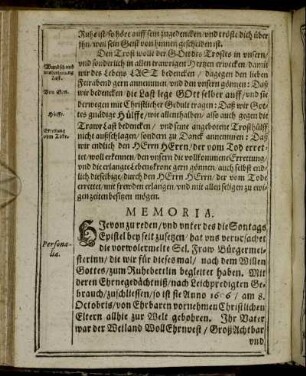 Ruhe ist/so höre auff sein zugedencken/ und tröste dich über
ihn/ weil sein Geist von hinnen gescheiden ist.
Den Trost wolle der G⊙ttdes Trostes in unsern/
und sonderlich in allen traurigen Hertzen erwecken/ damit
wir des Lebens LAST bedencken / dagegen den lieben
Feirabend gern annemmen/ und den unsern gönnen: Daß
wir bedencken die Last lege GOtt selber auff/ und sie
derwegen mit Christlicher Gedult tragen: Daß wir Got-
tes gnädige Hülffe/ wie allenthalben/ also auch gegen die
Traw Last bedencken / und seine angebotene Trosthülff
nicht außschlagen/ sondern zu Danck annemmen: Daß
wir endlich den HErrn HErrn/ der vom Tod errret-
tet/ woll erkennen/ den unsern die vollkommene Errettung/
und die erlangte Lebenskrone gern gönnen/ auch selbst end-
lich dieselbige/ durch den HErrn HErrn/ der vom Tode
errettet/ mit frewden erlangen/ und mit allen seligen zu ewi-
gen zeiten besitzen mögen.
Von Gott.
Hülffe.
Errettung
vom Tode.
MEMORIA.
HIevon zu reden/ und unter des die Sontags
Epistel bey seit zusetzen/ hat uns verursachet
die vorwolermelte Sel. Fraw Bürgerme-
sterinn/ die wir für dieses mal/ nach dem Willen
Gottes/ zum Ruhebettlin begleitet haben. Mit
deren Ehrnegedächtniß/ nach Leichpredigten Ge-
brauch/ zuschliessen/ so ist sie Anno 16 6 / am 8.
Octobris/ von Ehrbaren vornehmen Christlichen
Eltern allhie zur Welt gebohren. Ihr Vater
war der Weiland WollEhrnvest / GroßAchtbar
und
Persona-
lia.